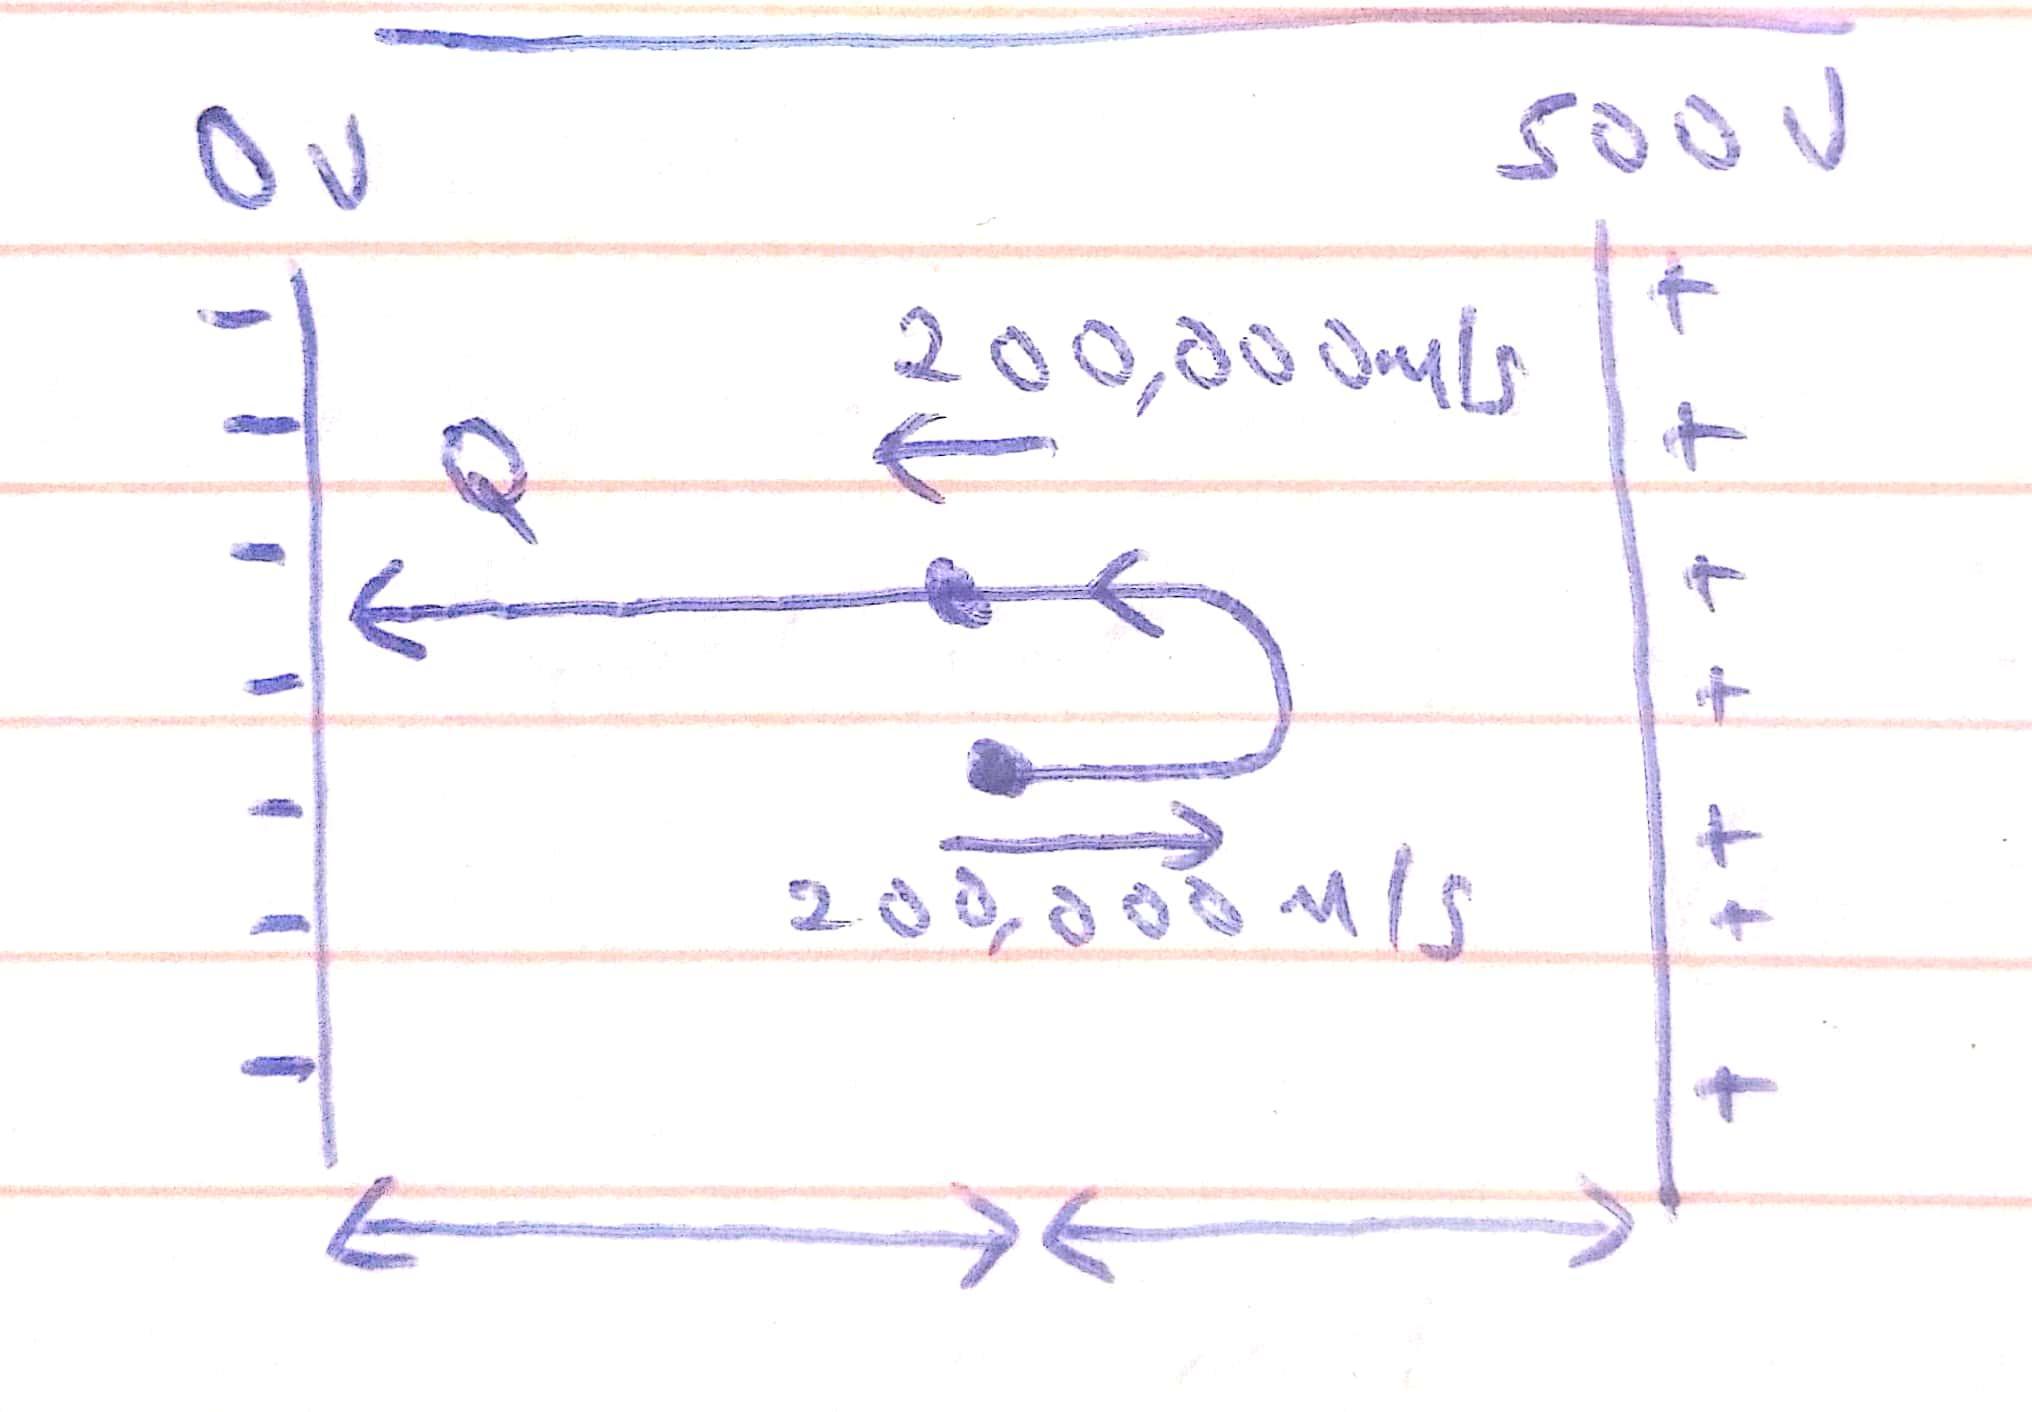 0V 500V
200,000m/s
Q
200,000m/s